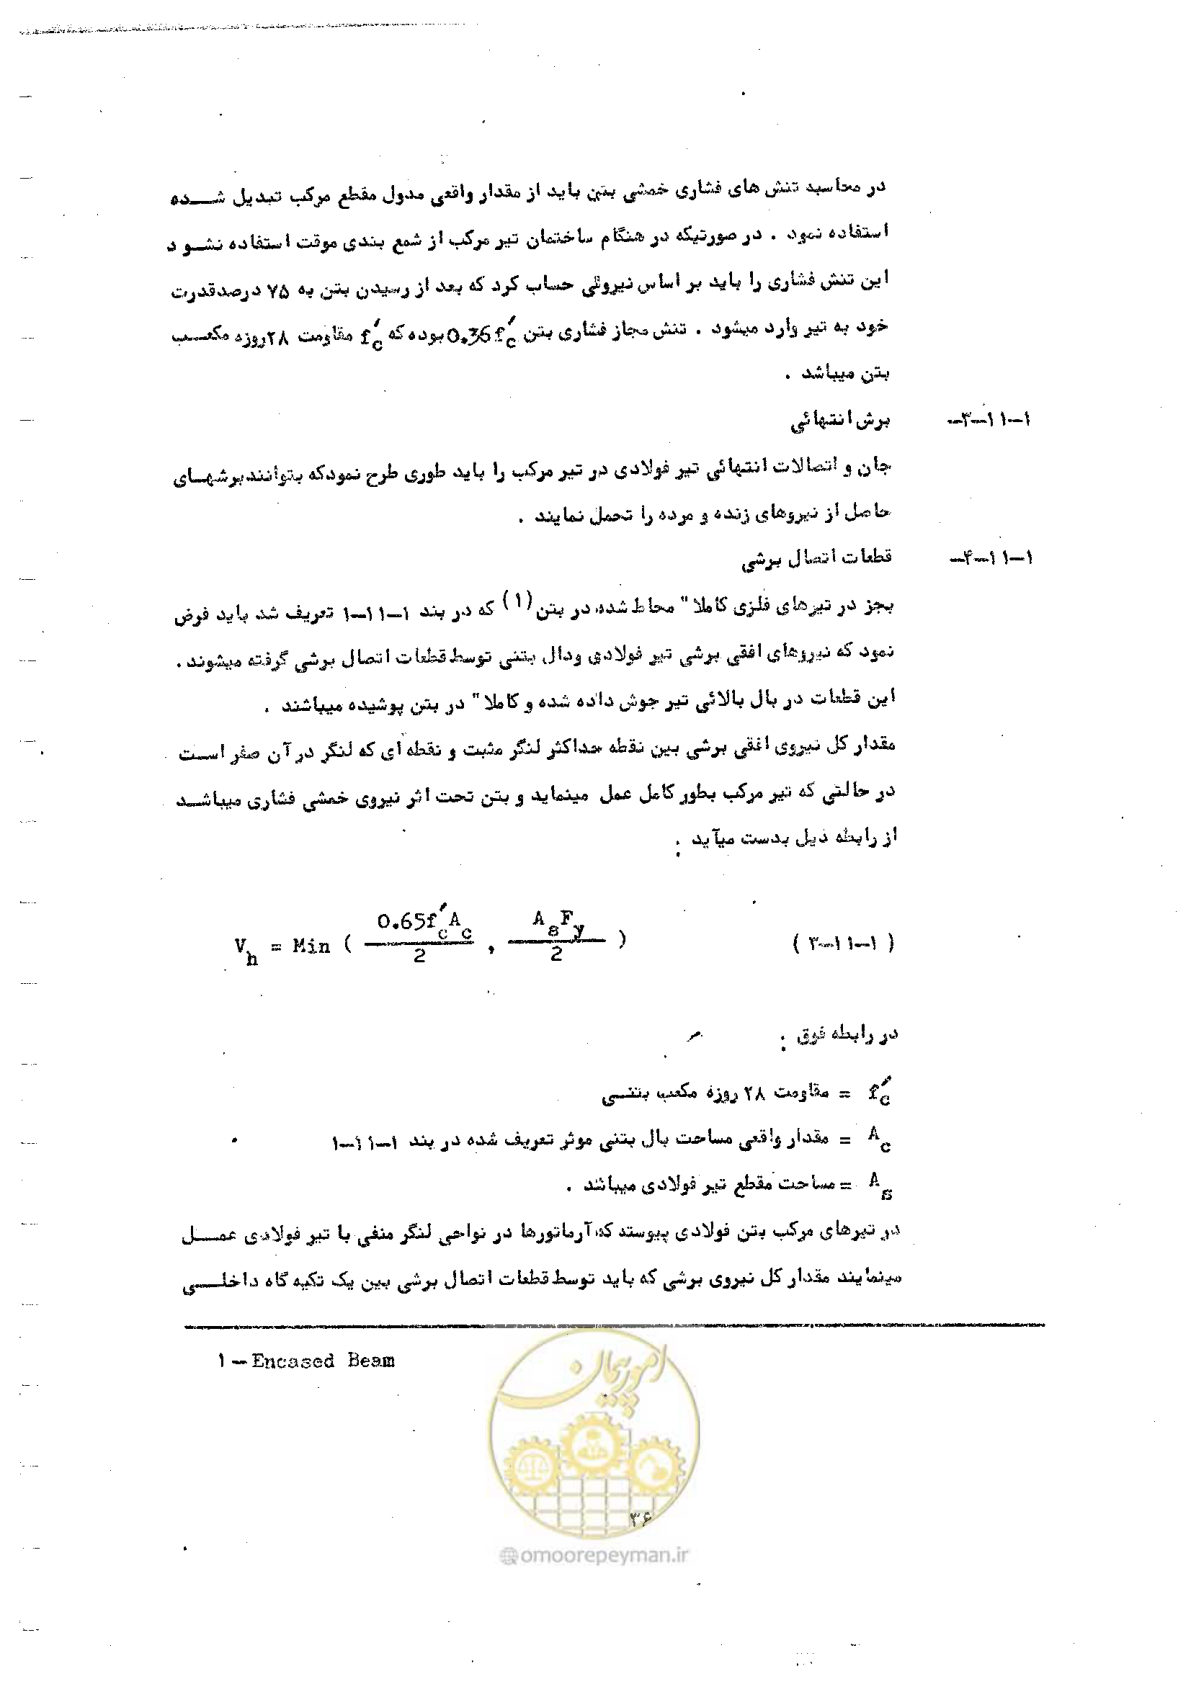 در محاسبه تنش های فشاری خمشی بتن باید از مقدار واقعی مدول مقطع مرکب تبدیل شـــده
استفاده نمود . در صورتیکه در هنگام ساختمان تیر مرکب از شمع بندی موقت استفاده نشـود
این تنش فشاری را باید بر اساس نیروئی حساب کرد که بعد از رسیدن بتن به ۷۵ درصدقدرت
خود به تیر وارد میشود . تنش مجاز فشاری بتن 0.36f′c بوده که f′c مقاومت ۲۸روزه مکعـــب
بتن میباشد .
۱-۱۱-۳- برش انتهائی
جان و اتصالات انتهائی تیر فولادی در تیر مرکب را باید طوری طرح نمودکه بتوانندبرشهـای
حاصل از نیروهای زنده و مرده را تحمل نمایند .
۱-۱۱-۴- قطعات اتصال برشی
بجز در تیرهای فلزی کاملا" محاط شده در بتن(۱) که در بند ۱-۱۱-۱ تعریف شد باید فرض
نمود که نیروهای افقی برشی تیر فولادی ودال بتنی توسط قطعات اتصال برشی گرفته میشوند .
این قطعات در بال بالائی تیر جوش داده شده و کاملا" در بتن پوشیده میباشند .
مقدار کل نیروی افقی برشی بین نقطه حداکثر لنگر مثبت و نقطه ای که لنگر در آن صفر اسـت
در حالتی که تیر مرکب بطور کامل عمل مینماید و بتن تحت اثر نیروی خمشی فشاری میباشـد
از رابطه ذیل بدست میآید :
V_h = Min ( 0.65f′_c A_c / 2 , A_s F_y / 2 ) ( ۱-۱۱-۳ )
در رابطه فوق :
f′c = مقاومت ۲۸ روزه مکعب بتنـی
A_c = مقدار واقعی مساحت بال بتنی موثر تعریف شده در بند ۱-۱۱-۱
A_s = مساحت مقطع تیر فولادی میباشد .
در تیرهای مرکب بتن فولادی پیوسته که آرماتورها در نواحی لنگر منفی با تیر فولادی عمـــل
مینمایند مقدار کل نیروی برشی که باید توسط قطعات اتصال برشی بین یک تکیه گاه داخلـــی
۱ - Encased Beam
امور پیمان
۳۶
@omoorepeyman.ir